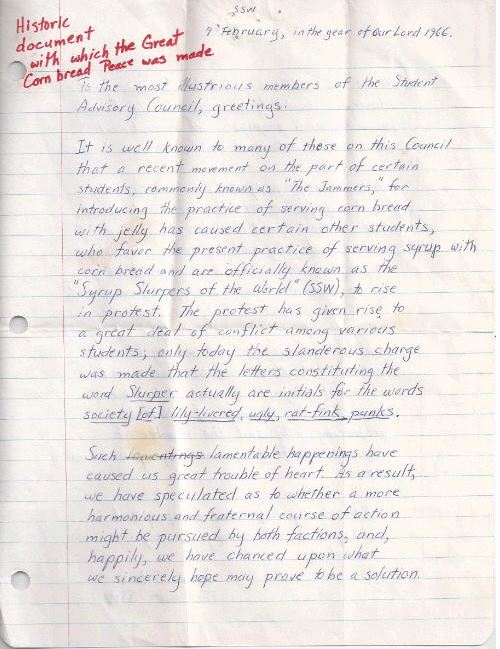 SSW
9 February, in the year of Our Lord 1966.
Historic
document
with which the Great
Corn bread Peace was made
To the most illustrious members of the Student
Advisory Council, greetings:
It is well known to many of those on this Council
that a recent movement on the part of certain
students, commonly known as "The Jammers," for
introducing the practice of serving corn bread
with jelly has caused certain other students,
who favor the present practice of serving syrup with
corn bread and are officially known as the
"Syrup Slurpers of the World" (SSW), to rise
in protest. The protest has given rise to
a great deal of conflict among various
students; only today the slanderous charge
was made that the letters constituting the
word Slurper actually are initials for the words
society [of] lily-livered, ugly, rat-fink, punks.
Such lamentings lamentable happenings have
caused us great trouble of heart. As a result,
we have speculated as to whether a more
harmonious and fraternal course of action
might be pursued by both factions, and,
happily, we have chanced upon what
we sincerely hope may prove to be a solution.